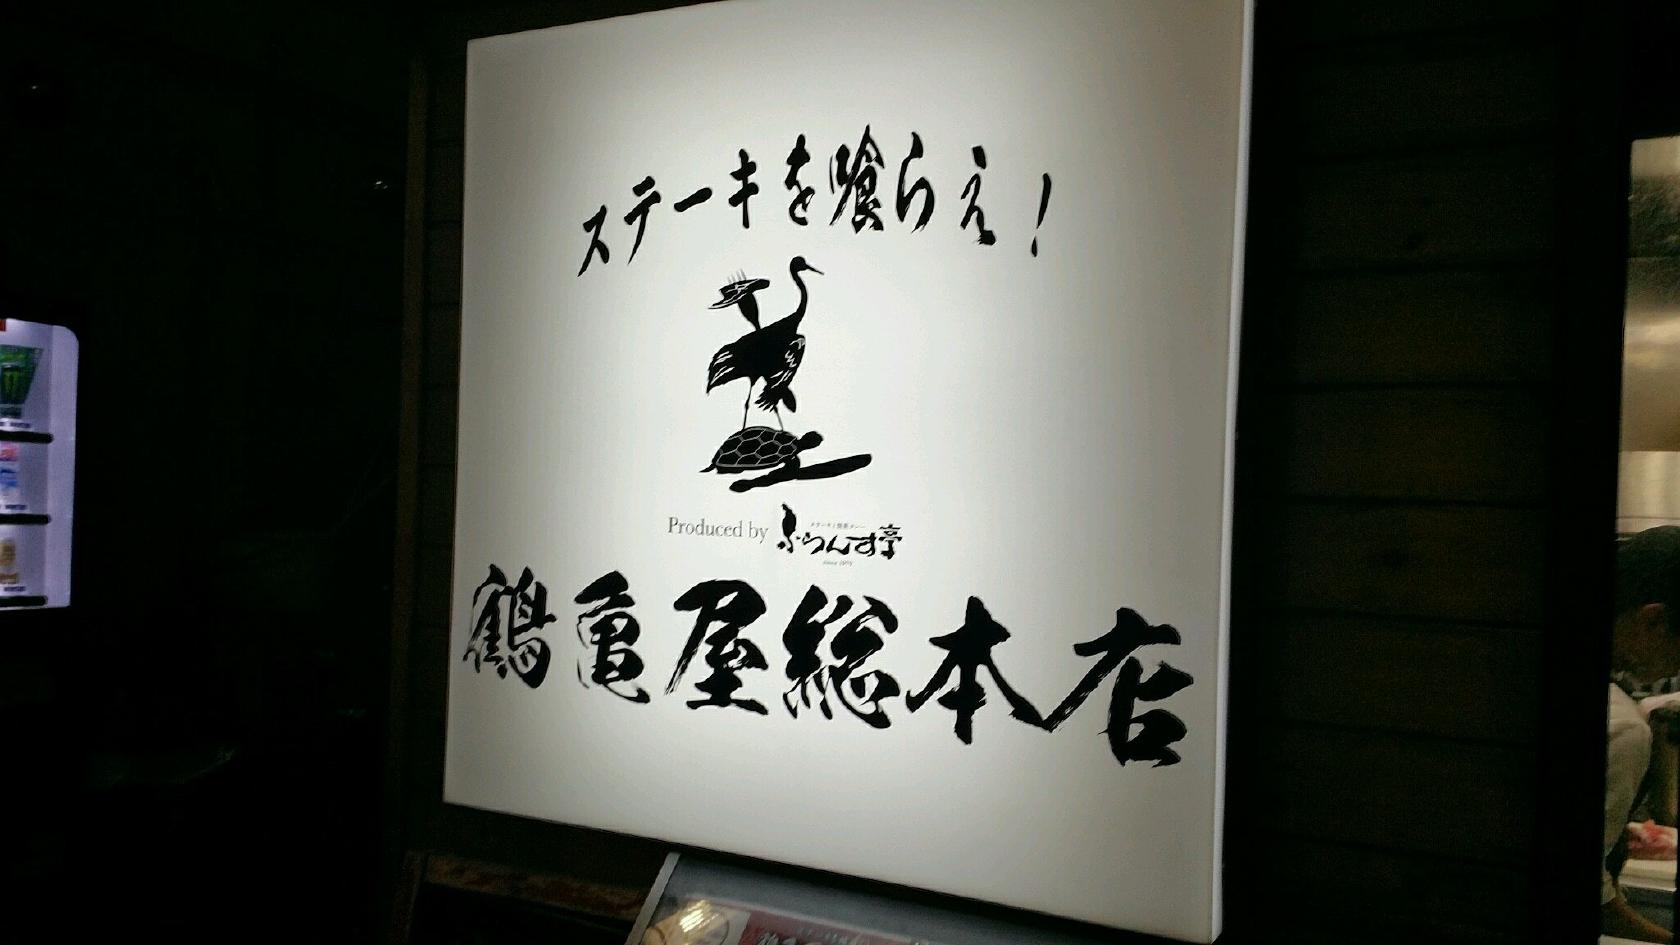 ステーキを喰らえ!
Produced by ふらんす亭
鶴亀屋総本店